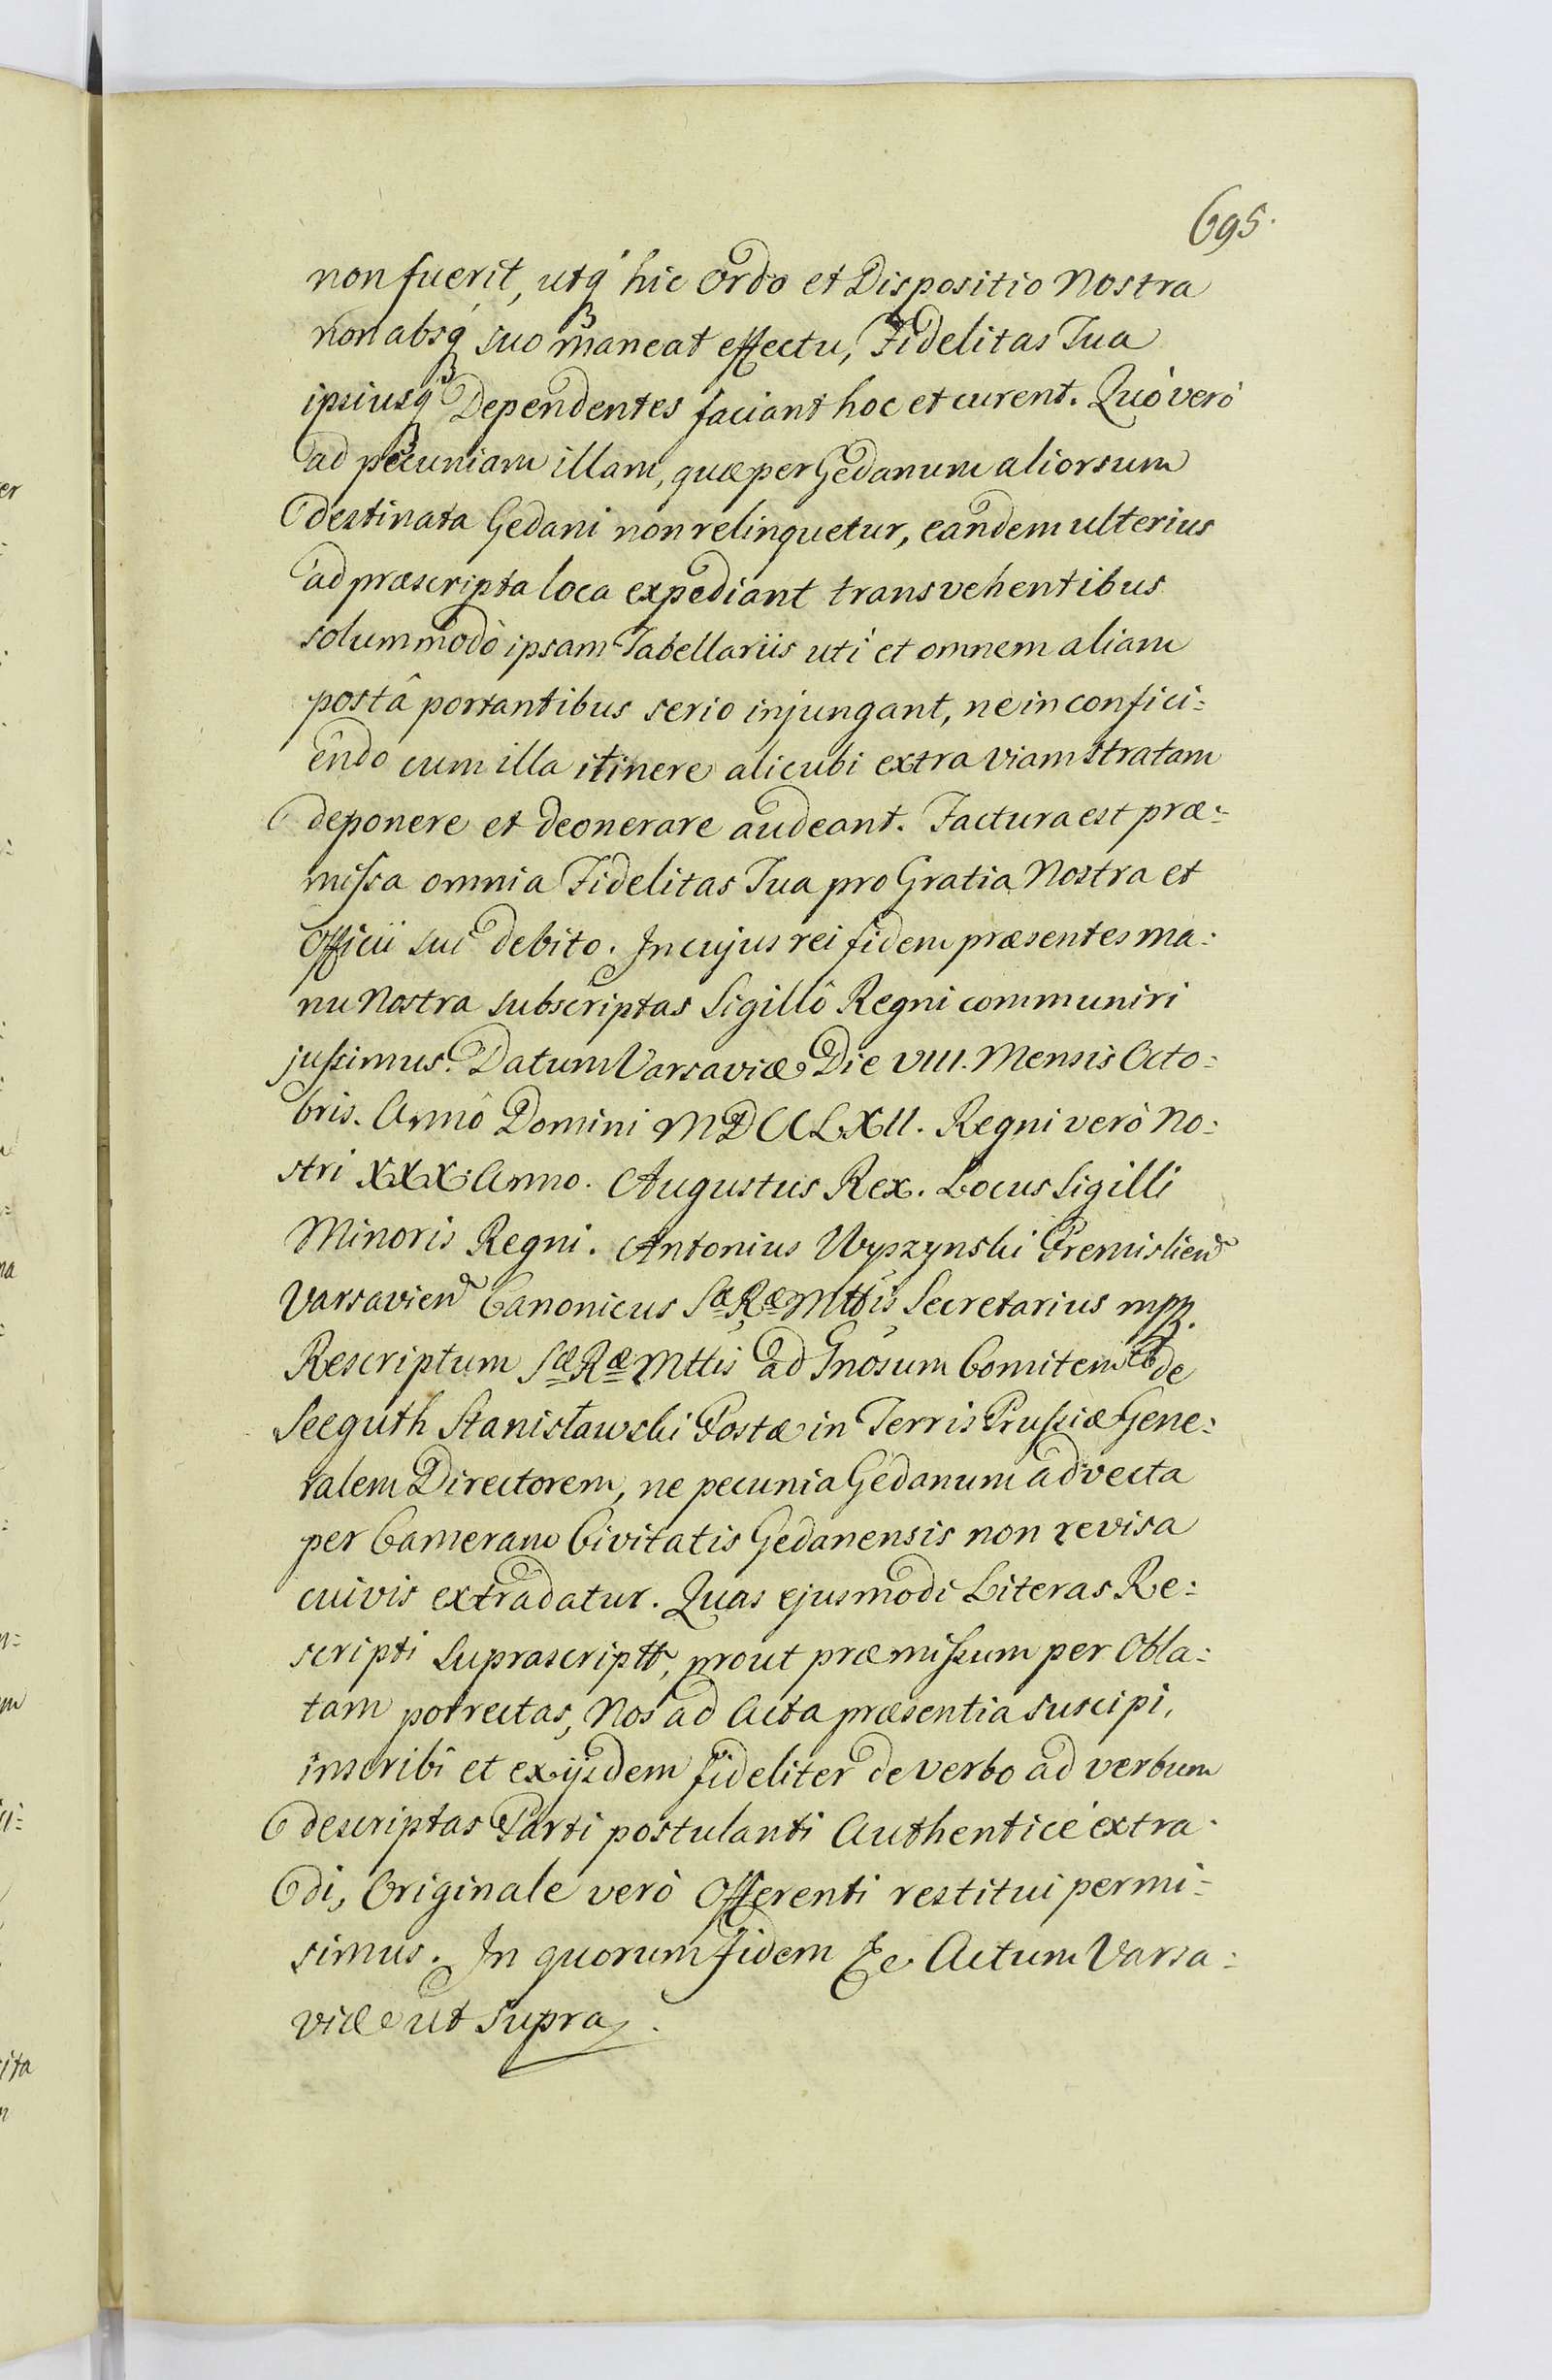 695.
non fuerit, utq̃ hic Ordo et Dispositio Nostra
non absq̃ suo maneat effectu, Fidelitas Tua
ipsiusq̃ Dependentes faciant hoc et curent. Quò verò
ad pecuniam illam, quæ per Gedanum aliorsum
destinata Gedani non relinquetur, eandem ulterius
ad præscripta loca expediant transvehentibus
solummodò ipsam Tabellariis uti et omnem aliam
postâ portantibus serio injungant, ne in confici:
endo cum illa itinere alicubi extra viam stratam
deponere et deonerare audeant. Factura est præ:
missa omnia Fidelitas Tua pro Gratia Nostra et
Officii sui debito. In cujus rei fidem præsentes ma:
nu Nostra subscriptas Sigillô Regni communiri
jussimus. Datum Varsaviæ Die VIII. Mensis Octo:
bris. Annô Domini MDCCLXII. Regni verò No:
stri XXX. Anno. Augustus Rex. Locus Sigilli
Minoris Regni. Antonius Wyszynski Premislien̄
Varsavien̄ Canonicus Sæ Ræ Mttis Secretarius mpp.
Rescriptum Sæ Ræ Mttis ad Gnosum Comitem de
Seeguth Stanisławski Postæ in Terris Prussiæ Gene:
ralem Directorem, ne pecunia Gedanum advecta
per Cameram Civitatis Gedanensis non revisa
cuivis extradatur. Quas ejusmodi Literas Re:
scripti Suprascriptt, prout præmissum per Obla:
tam porrectas, Nos ad Acta præsentia suscipi,
inscribi et ex ijsdem fideliter de verbo ad verbum
descriptas Parti postulanti Authenticè extra:
di, Originale verò Offerenti restitui permi:
simus. In quorum fidem &c. Actum Varsa:
viæ ut supra.